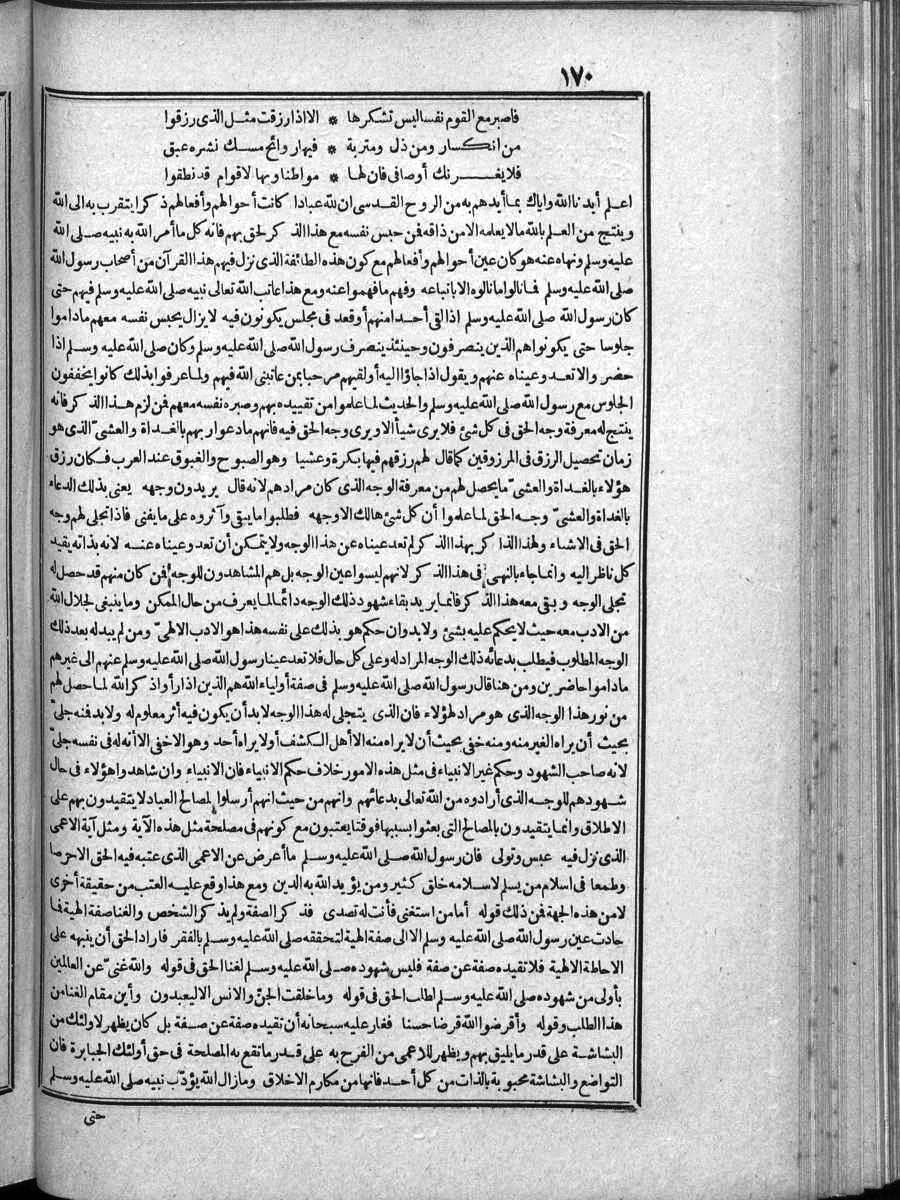 ١٧٠
فاصبر مع القوم نفسا ليس تشكرها * الا اذا رزقت مثل الذى رزقوا
من انكسار ومن ذل ومتربة * فيها روائح مسك نشره عبق
فلا يغرنك أوصافى فان لها * مواطنا وبها الاقوام قد نطقوا
اعلم أيدنا الله واياك بما أيدهم به من الروح القدسى ان لله عبادا كانت أحوالهم وأفعالهم ذكرا يتقرب به الى الله
وينتج من العلم بالله مالا يعلمه الا من ذاقه فمن حبس نفسه مع هذا الذكر لحق بهم فانه كل ما أمر الله به نبيه صلى الله
عليه وسلم ونهاه عنه هو كان عين أحوالهم وأفعالهم مع كون هذه الطائفة الذى نزل فيهم هذا القرآن من أصحاب رسول الله
صلى الله عليه وسلم فما نالوا ما نالوه الا باتباعه وفهم ما فهموا عنه ومع هذا عاتب الله تعالى نبيه صلى الله عليه وسلم فيهم حتى
كان رسول الله صلى الله عليه وسلم اذا لقى أحدا منهم أو قعد فى مجلس يكونون فيه لا يزال يحبس نفسه معهم ماداموا
جلوسا حتى يكونوا هم الذين ينصرفون وحينئذ ينصرف رسول الله صلى الله عليه وسلم وكان صلى الله عليه وسلم اذا
حضر والا تعد وعيناه عنهم ويقول اذا جاؤا اليه أو لقيهم مرحبا بمن عاتبنى الله فيهم ولما عرفوا بذلك كانوا يخففون
الجلوس مع رسول الله صلى الله عليه وسلم والحديث لما علموا من تقييده بهم وصبره نفسه معهم فمن لزم هذا الذكر فانه
ينتج له معرفة وجه الحق فى كل شئ فلا يرى شيأ الا ويرى وجه الحق فيه فانهم ما دعوا ربهم بالغداة والعشىّ الذى هو
زمان تحصيل الرزق فى المرزوقين كما قال لهم رزقهم فيها بكرة وعشيا وهو الصبوح والغبوق عند العرب فكان رزق
هؤلاء بالغداة والعشىّ ما يحصل لهم من معرفة الوجه الذى كان مرادهم لانه قال يريدون وجهه يعنى بذلك الدعاء
بالغداة والعشىّ وجه الحق لما علموا أن كل شئ هالك الا وجهه فطلبوا ما يبقى وآثروه على ما يفنى فاذا تجلى لهم وجه
الحق فى الاشياء ولهذا الذاكر بهذا الذكر لم تعد عيناه عن هذا الوجه ولا يتمكن أن تعد وعيناه عنه لانه بذاته يقيد
كل ناظر اليه وانما جاء بالنهى فى هذا الذكر لانهم ليسوا عين الوجه بل هم المشاهدون للوجه فمن كان منهم قد حصل له
تجلى الوجه وبقى معه هذا الذكر فانما يريد بقاء شهود ذلك الوجه دائما لما يعرف من حال الممكن وما ينبغى لجلال الله
من الادب معه حيث لا يحكم عليه بشئ ولا بد وان حكم هو بذلك على نفسه هذا هو الادب الالهىّ ومن لم يبد له بعد ذلك
الوجه المطلوب فيطلب بدعائه ذلك الوجه المراد له وعلى كل حال فلا تعد عينا رسول الله صلى الله عليه وسلم عنهم الى غيرهم
ماداموا حاضرين ومن هنا قال رسول الله صلى الله عليه وسلم فى صفة أولياء الله هم الذين اذا رأوا ذكر الله لما حصل لهم
من نور هذا الوجه الذى هو مراد لهؤلاء فان الذى يتجلى له هذا الوجه لا بد أن يكون فيه أثر معلوم له ولا بد فمنه جلىّ
بحيث أن يراه الغير منه ومنه خفى بحيث أن لا يراه منه الا أهل الكشف أو لا يراه أحد وهو الاخفى الا أنه له فى نفسه جلىّ
لانه صاحب الشهود وحكم غير الانبياء فى مثل هذه الامور خلاف حكم الانبياء فان الانبياء وان شاهدوا هؤلاء فى حال
شهودهم للوجه الذى أرادوه من الله تعالى بدعائهم وانهم من حيث انهم أرسلوا لمصالح العباد لا يتقيدون بهم على
الاطلاق وانما يتقيدون بالمصالح التى بعثوا بسببها فوقتا يعتبون مع كونهم فى مصلحة مثل هذه الآية ومثل آية الاعمى
الذى نزل فيه عبس وتولى فان رسول الله صلى الله عليه وسلم ما أعرض عن الاعمى الذى عتبه فيه الحق الا حرصا
وطمعا فى اسلام من يسلم لاسلامه خلق كثير ومن يؤيد الله به الدين ومع هذا وقع عليه العتب من حقيقة أخرى
لا من هذه الجهة فمن ذلك قوله أما من استغنى فأنت له تصدى فذكر الصفة ولم يذكر الشخص والغنا صفة الهية فما
حادت عين رسول الله صلى الله عليه وسلم الا الى صفة الهية لتحققه صلى الله عليه وسلم بالفقر فاراد الحق أن ينبهه على
الاحاطة الالهية فلا تقيده صفة عن صفة فليس شهوده صلى الله عليه وسلم لغنا الحق فى قوله والله غنىّ عن العالمين
بأولى من شهوده صلى الله عليه وسلم لطلب الحق فى قوله وما خلقت الجنّ والانس الا ليعبدون وأين مقام الغنا من
هذا الطلب وقوله وأقرضوا الله قرضا حسنا فغار عليه سبحانه أن تقيده صفة عن صفة بل كان يظهر لاولئك من
البشاشة على قدر ما يليق بهم ويظهر للاعمى من الفرح به على قدر ما تقع به المصلحة فى حق أولئك الجبابرة فان
التواضع والبشاشة محبوبة بالذات من كل أحد فانها من مكارم الاخلاق وما زال الله يؤدّب نبيه صلى الله عليه وسلم
حتى